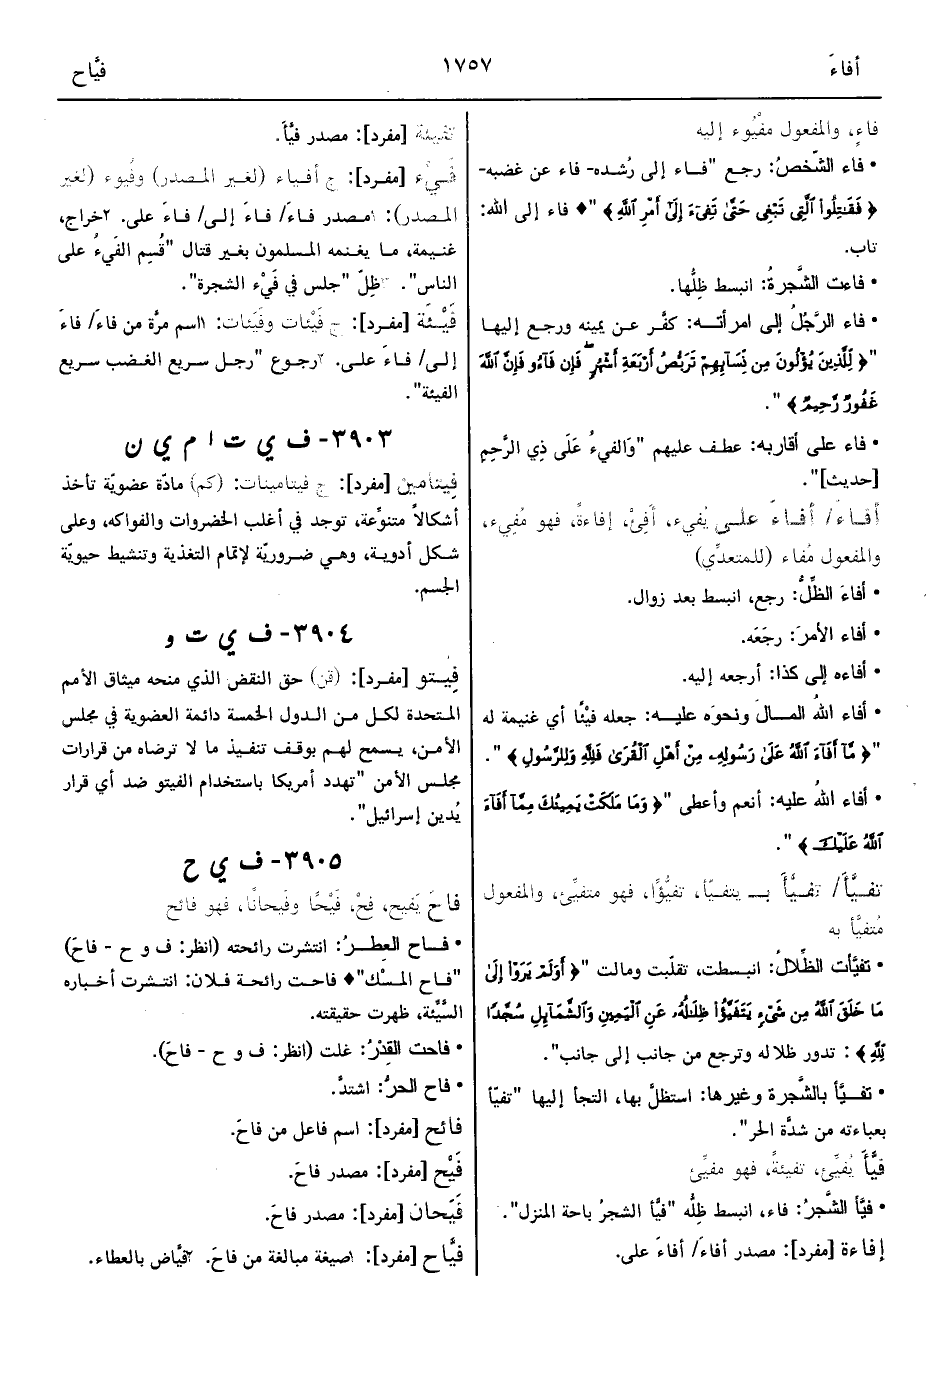 أفاءَ ١٧٥٧ فيَّاح
فاءٍ، والمفعول مفْيُوء إليه
• فاء الشَّخصُ: رجع "فـاء إلى رُشده- فاء عن غضبه-
﴿ فَقَٰتِلُوا۟ ٱلَّتِى تَبْغِى حَتَّىٰ تَفِىٓءَ إِلَىٰٓ أَمْرِ ٱللَّهِ ﴾ "♦ فاء إلى الله:
تاب.
• فاءت الشَّجرةُ: انبسط ظِلُّها.
• فاء الرَّجُلُ إلى امرأتـه: كفَّر عـن يمينه ورجع إليها
"﴿ لِّلَّذِينَ يُؤْلُونَ مِن نِّسَآئِهِمْ تَرَبُّصُ أَرْبَعَةِ أَشْهُرٍۖ فَإِن فَآءُو فَإِنَّ ٱللَّهَ
غَفُورٌ رَّحِيمٌ ﴾ ".
• فاء على أقاربه: عطف عليهم "وَالفيءُ عَلَى ذِي الرَّحِمِ
[حديث]".
أفـاءَ/ أفـاءَ علـى يُفيء، أَفِئْ، إفاءةً، فهو مُفيء،
والمفعول مُفاء (للمتعدِّي)
• أفاءَ الظِّلُّ: رجع، انبسط بعد زوال.
• أفاء الأمرَ: رجَعَه.
• أفاءه إلى كذا: أرجعه إليه.
• أفاء اللهُ المـالَ ونحوَه عليـه: جعله فيْئًا أي غنيمة له
"﴿ مَّآ أَفَآءَ ٱللَّهُ عَلَىٰ رَسُولِهِۦ مِنْ أَهْلِ ٱلْقُرَىٰ فَلِلَّهِ وَلِلرَّسُولِ ﴾ ".
• أفاء اللهُ عليه: أنعم وأعطى "﴿ وَمَا مَلَكَتْ يَمِينُكَ مِمَّآ أَفَآءَ
ٱللَّهُ عَلَيْكَ ﴾ ".
تفـيَّأَ/ تفـيَّأَ بـــ يتفـيَّأ، تفيُّؤًا، فهو متفيِّئ، والمفعول
مُتفيَّأ به
• تفيَّأت الظِّلالُ: انبـسطت، تقلَّبت ومالت "﴿ أَوَلَمْ يَرَوْا۟ إِلَىٰ
مَا خَلَقَ ٱللَّهُ مِن شَىْءٍ يَتَفَيَّؤُا۟ ظِلَٰلُهُۥ عَنِ ٱلْيَمِينِ وَٱلشَّمَآئِلِ سُجَّدًا
لِّلَّهِ ﴾ : تدور ظلاله وترجع من جانب إلى جانب".
• تفـيَّأ بالشَّجرة وغيرها: استظلَّ بها، التجأ إليها "تفيَّأ
بعباءته من شدَّة الحر".
فيَّأَ يُفيِّئ، تفيئةً، فهو مفيِّئ
• فيَّأ الشَّجرُ: فاء، انبسط ظِلُّه "فيَّأ الشجرُ باحة المنزل".
إفاءة [مفرد]: مصدر أفاءَ/ أفاءَ على.
تفيئة [مفرد]: مصدر فيَّأَ.
فَيْء [مفرد]: ج أفيـاء (لغـير المـصدر) وفُيوء (لغير
المـصدر): ١مـصدر فـاءَ/ فـاءَ إلى/ فـاءَ على. ٢خراج،
غنيمة، مـا يغنمه المسلمون بغير قتال "قُسِم الفَيءُ على
الناس". ٣ظِلّ "جلس في فَيْء الشجرة".
فَيْئَة [مفرد]: ج فَيْئات وفَيَئات: ١اسم مرَّة من فاءَ/ فاءَ
إلى/ فـاءَ على. ٢رجـوع "رجـل سـريع الغـضب سـريع
الفيئة".
٣٩٠٣- ف ي ت ا م ي ن
فِيتامين [مفرد]: ج فيتامينات: (كم) مادّة عضويّة تأخذ
أشكالاً متنوِّعة، توجد في أغلب الخضروات والفواكه، وعلى
شكل أدويـة، وهـي ضـروريّة لإتمام التغذية وتنشيط حيويّة
الجسم.
٣٩٠٤- ف ي ت و
فِيتـو [مفرد]: (قن) حق النقض الذي منحه ميثاق الأمم
المتحدة لكـل مـن الـدول الخمسة دائمة العضوية في مجلس
الأمـن، يـسمح لهـم بوقـف تنفيـذ ما لا ترضاه من قرارات
مجلس الأمن "تهدد أمريكا باستخدام الفيتو ضد أي قرار
يُدين إسرائيل".
٣٩٠٥- ف ي ح
فاحَ يَفيح، فِحْ، فَيْحًا وفَيحانًا، فهو فائح
• فــاح العِطـرُ: انتشرت رائحته (انظر: ف و ح - فاحَ)
"فـاح المسْك"♦ فاحـت رائحـة فـلان: انتـشرت أخبـاره
السَّيِّئة، ظهرت حقيقته.
• فاحت القِدْرُ: غلت (انظر: ف و ح - فاحَ).
• فاح الحرُّ: اشتدَّ.
فائح [مفرد]: اسم فاعل من فاحَ.
فَيْح [مفرد]: مصدر فاحَ.
فَيَحان [مفرد]: مصدر فاحَ.
فَيَّاح [مفرد]: ١صيغة مبالغة من فاحَ. ٢فيَّاض بالعطاء.